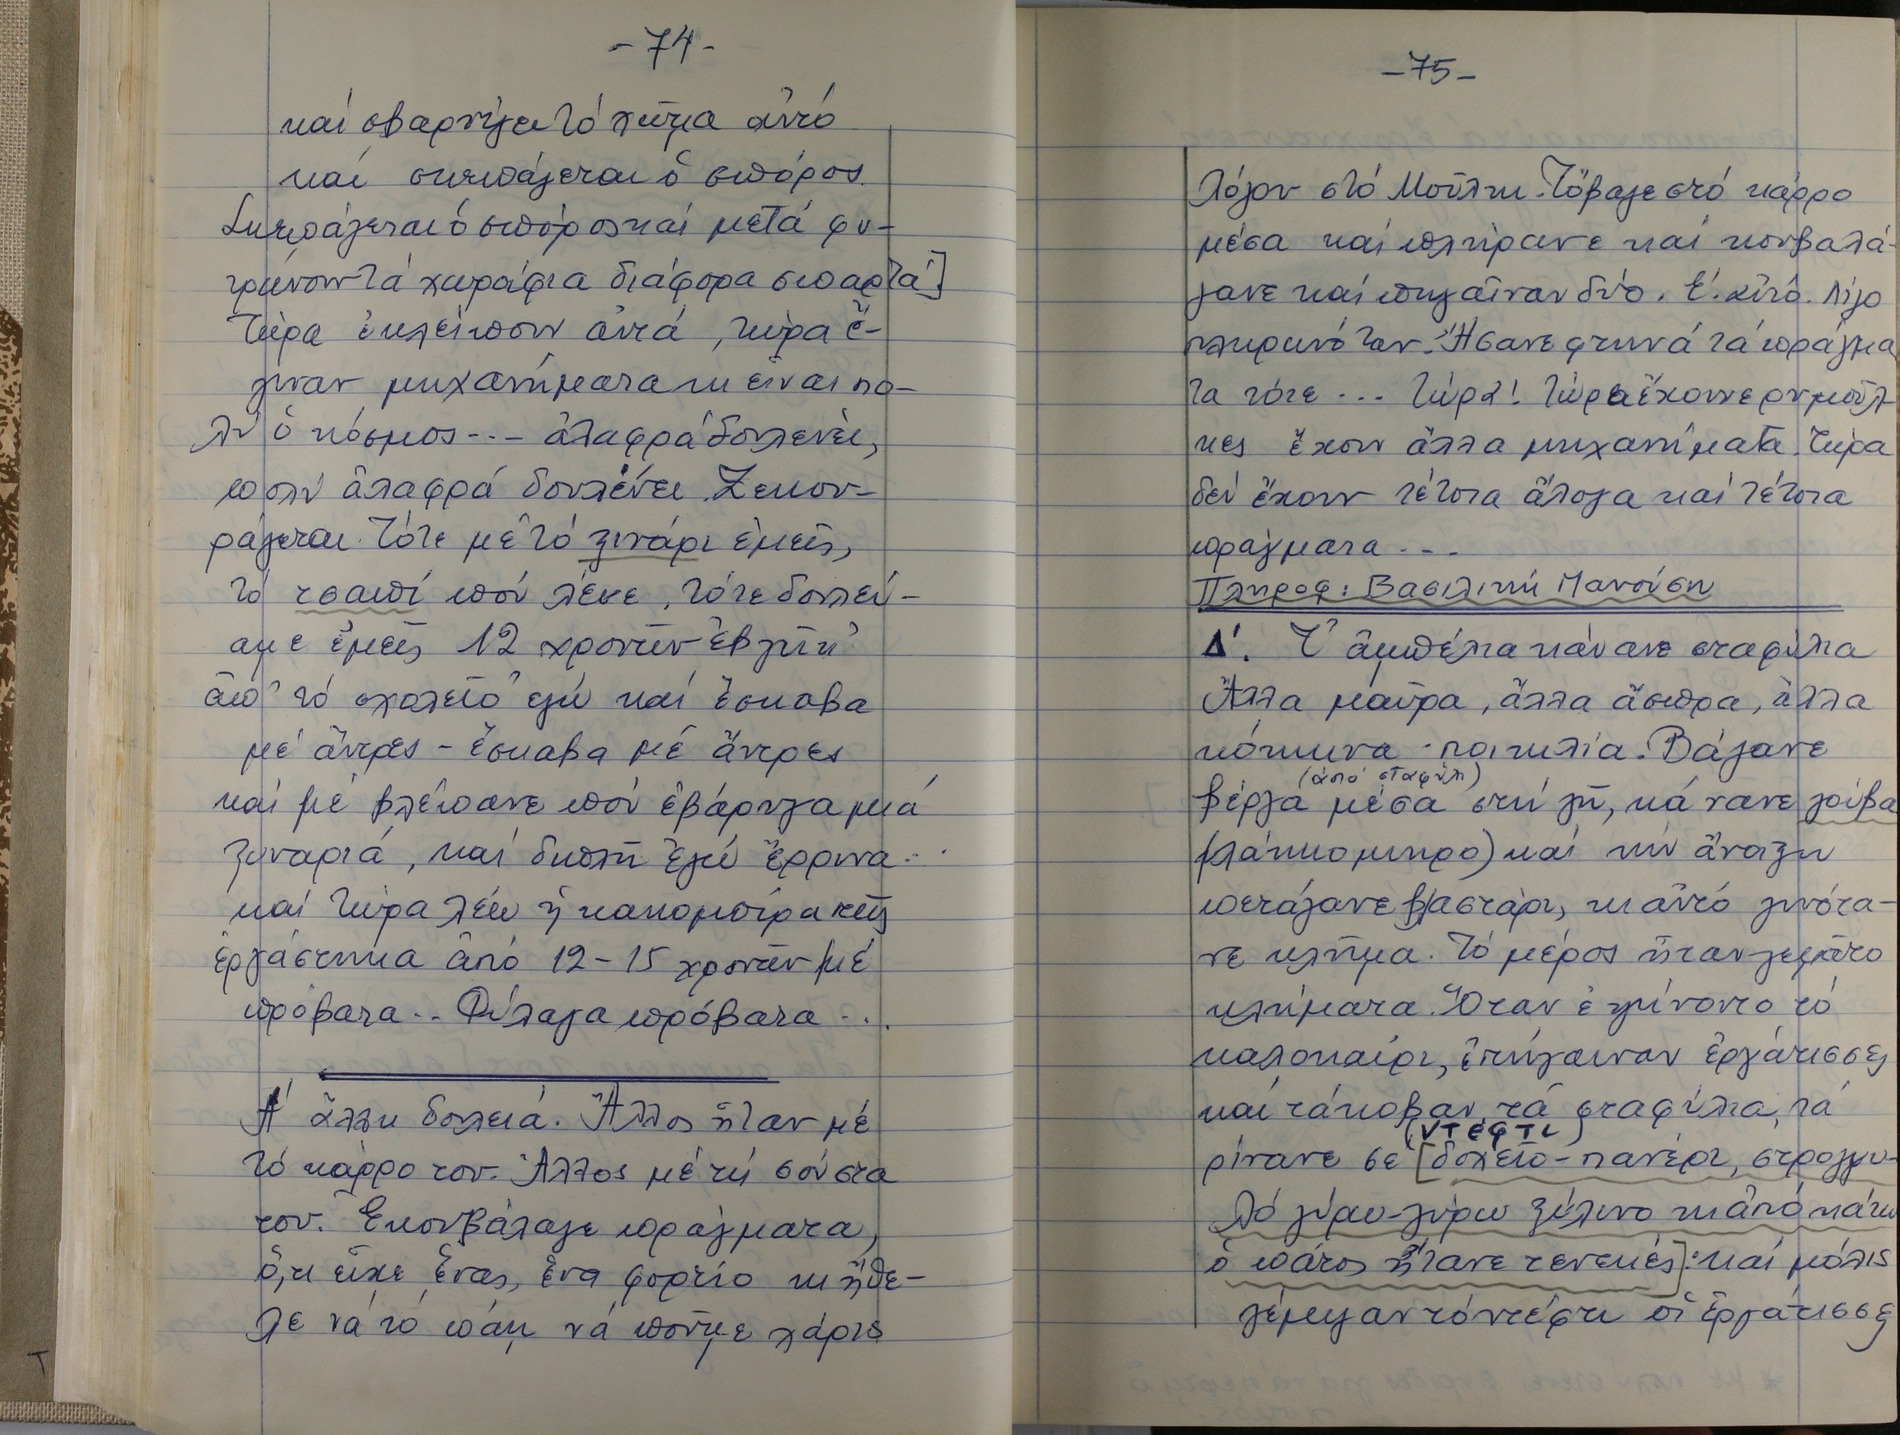 -74-
καί σβαρνίζει τό χῶμα αὐτό
καί σκεπάζεται ὁ σπόρος.
Σκεπάζεται ὁ σπόρος καί μετά φυ-
τρώνουν τά χωράφια διάφορα σπαρτά]
Τώρα ἐκλείπουν αὐτά, τώρα ἔ-
γιναν μηχανήματα κι εἶναι πο-
λύ ὁ κόσμος --- ἀλαφρά δουλεύει,
πολύ ἀλαφρά δουλεύει. Ξεκου-
ράζεται. Τότε μέ τό ξινάρι ἐμεῖς,
τό τσαπί πού λέμε, τότε δουλεύ-
αμε ἐμεῖς 12 χρονῶν ἐβγῆκ'
ἀπ' τό σχολεῖο ἐγώ καί ἔσκαβα
μέ ἄντρες - ἔσκαβα μέ ἄντρες
καί μέ βλέπανε πού ἐβάρυγα μιά
ξιναριά, καί διπλή ἐγώ ἔρρινα...
καί τώρα λέω ἡ κακομοίρα κεῖς
ἐργάστηκα ἀπό 12-15 χρονῶν μέ
πρόβατα.. Φύλαγα πρόβατα...
Ἀ ἄλλη δουλειά. Ἄλλος ἦταν μέ
τό κάρρο του. Ἄλλος μέ τή σούστα
του. Ἐκουβάλαγε πράγματα,
ὅ,τι εἶχε ἕνας, ἕνα φορτίο κι ἤθε-
λε νά τό πάη νά ποῦμε χάρις
-75-
λόγου στό Μοῦλκι. Τὄβαζε στό κάρρο
μέσα καί πλήρανε καί κουβαλά-
γανε καί πηγαῖναν δύο. Ἐ. αὐτό. Λίγο
πληρωνόταν. Ἤσανε φτηνά τά πράγμα
τα τότε ... Τώρα! Τώρα ἔχουνε ρυμούλ-
κες ἔχουν ἄλλα μηχανήματα. Τώρα
δέν ἔχουν τέτοια ἄλογα καί τέτοια
πράγματα ...
Πληροφ: Βασιλική Μανούση
Δ'. Τ' ἀμπέλια κάνανε σταφύλια
Ἄλλα μαῦρα, ἄλλα ἄσπρα, ἄλλα
κόκκινα · ποικιλία. Βάζανε
(ἀπό σταφύλι)
βέργα μέσα στή γῆ, κάνανε γούβα
(λάκκο μικρό) καί τήν ἄνοιξη
πετάγανε βλαστάρι, κι αὐτό γινότα-
νε κλῆμα. Τό μέρος ἦταν γεμᾶτο
κλήματα. Ὅταν ἐγίνοντο τό
καλοκαίρι, ἐπήγαιναν ἐργάτισσες
καί τάκοβαν τά σταφύλια, τά
(ντέφτι)
ρίνανε σέ [δοχεῖο-πανέρι, στρογγυ-
λό γύρω-γύρω ξύλινο κι ἀπό κάτω
ὁ πάτος ἤτανε τενεκές]: καί μόλις
γέμιζαν τό ντέφτι οἱ ἐργάτισσες